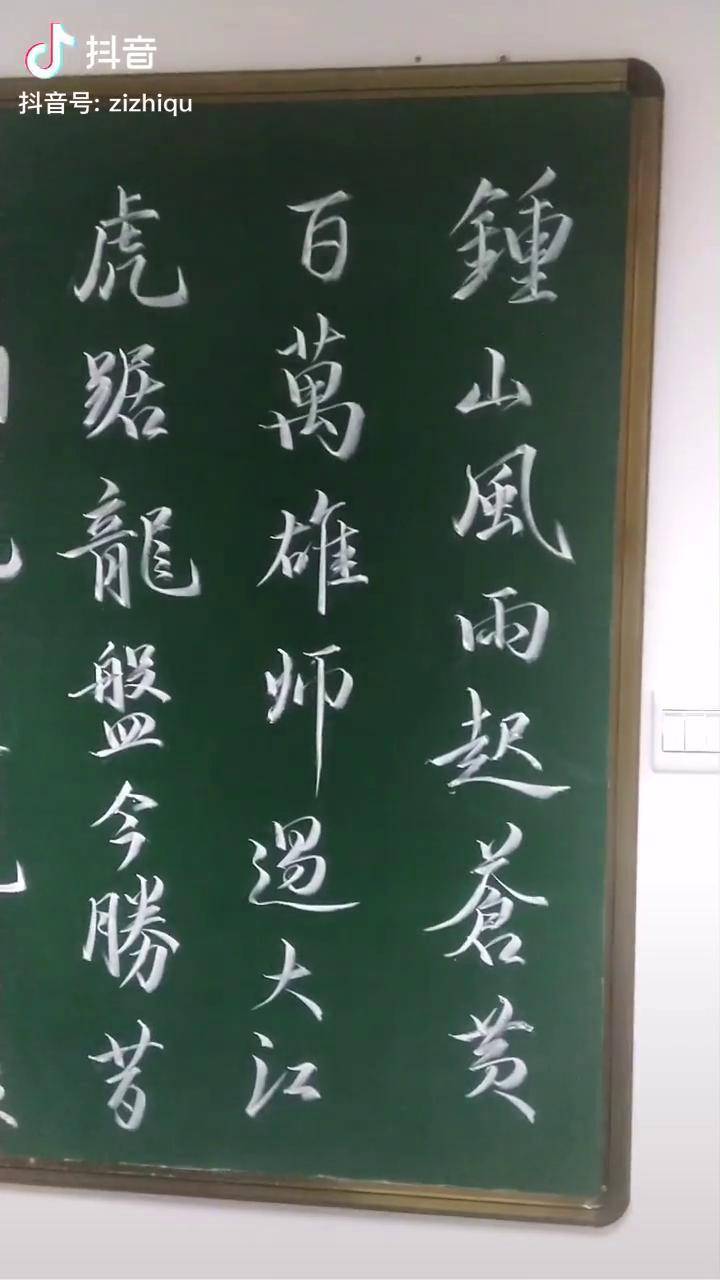 抖音
抖音号: zizhiqu
鍾山風雨起蒼黄
百萬雄师過大江
虎踞龍盤今勝昔